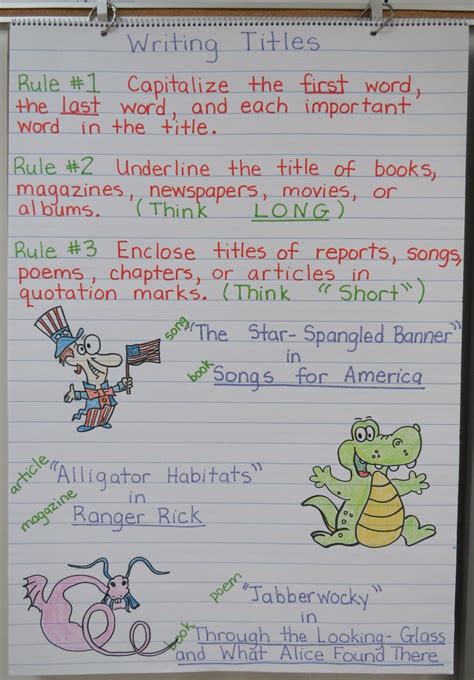 Writing Titles
Rule #1 Capitalize the first word,
the last word, and each important
word in the title.
Rule #2 Underline the title of books,
magazines, newspapers, movies, or
albums. (Think LONG)
Rule #3 Enclose titles of reports, songs,
poems, chapters, or articles in
quotation marks. (Think "Short")
song "The Star-Spangled Banner"
in
book Songs for America
article "Alligator Habitats"
in
magazine Ranger Rick
poem "Jabberwocky"
in
book Through the Looking-Glass
and What Alice Found There